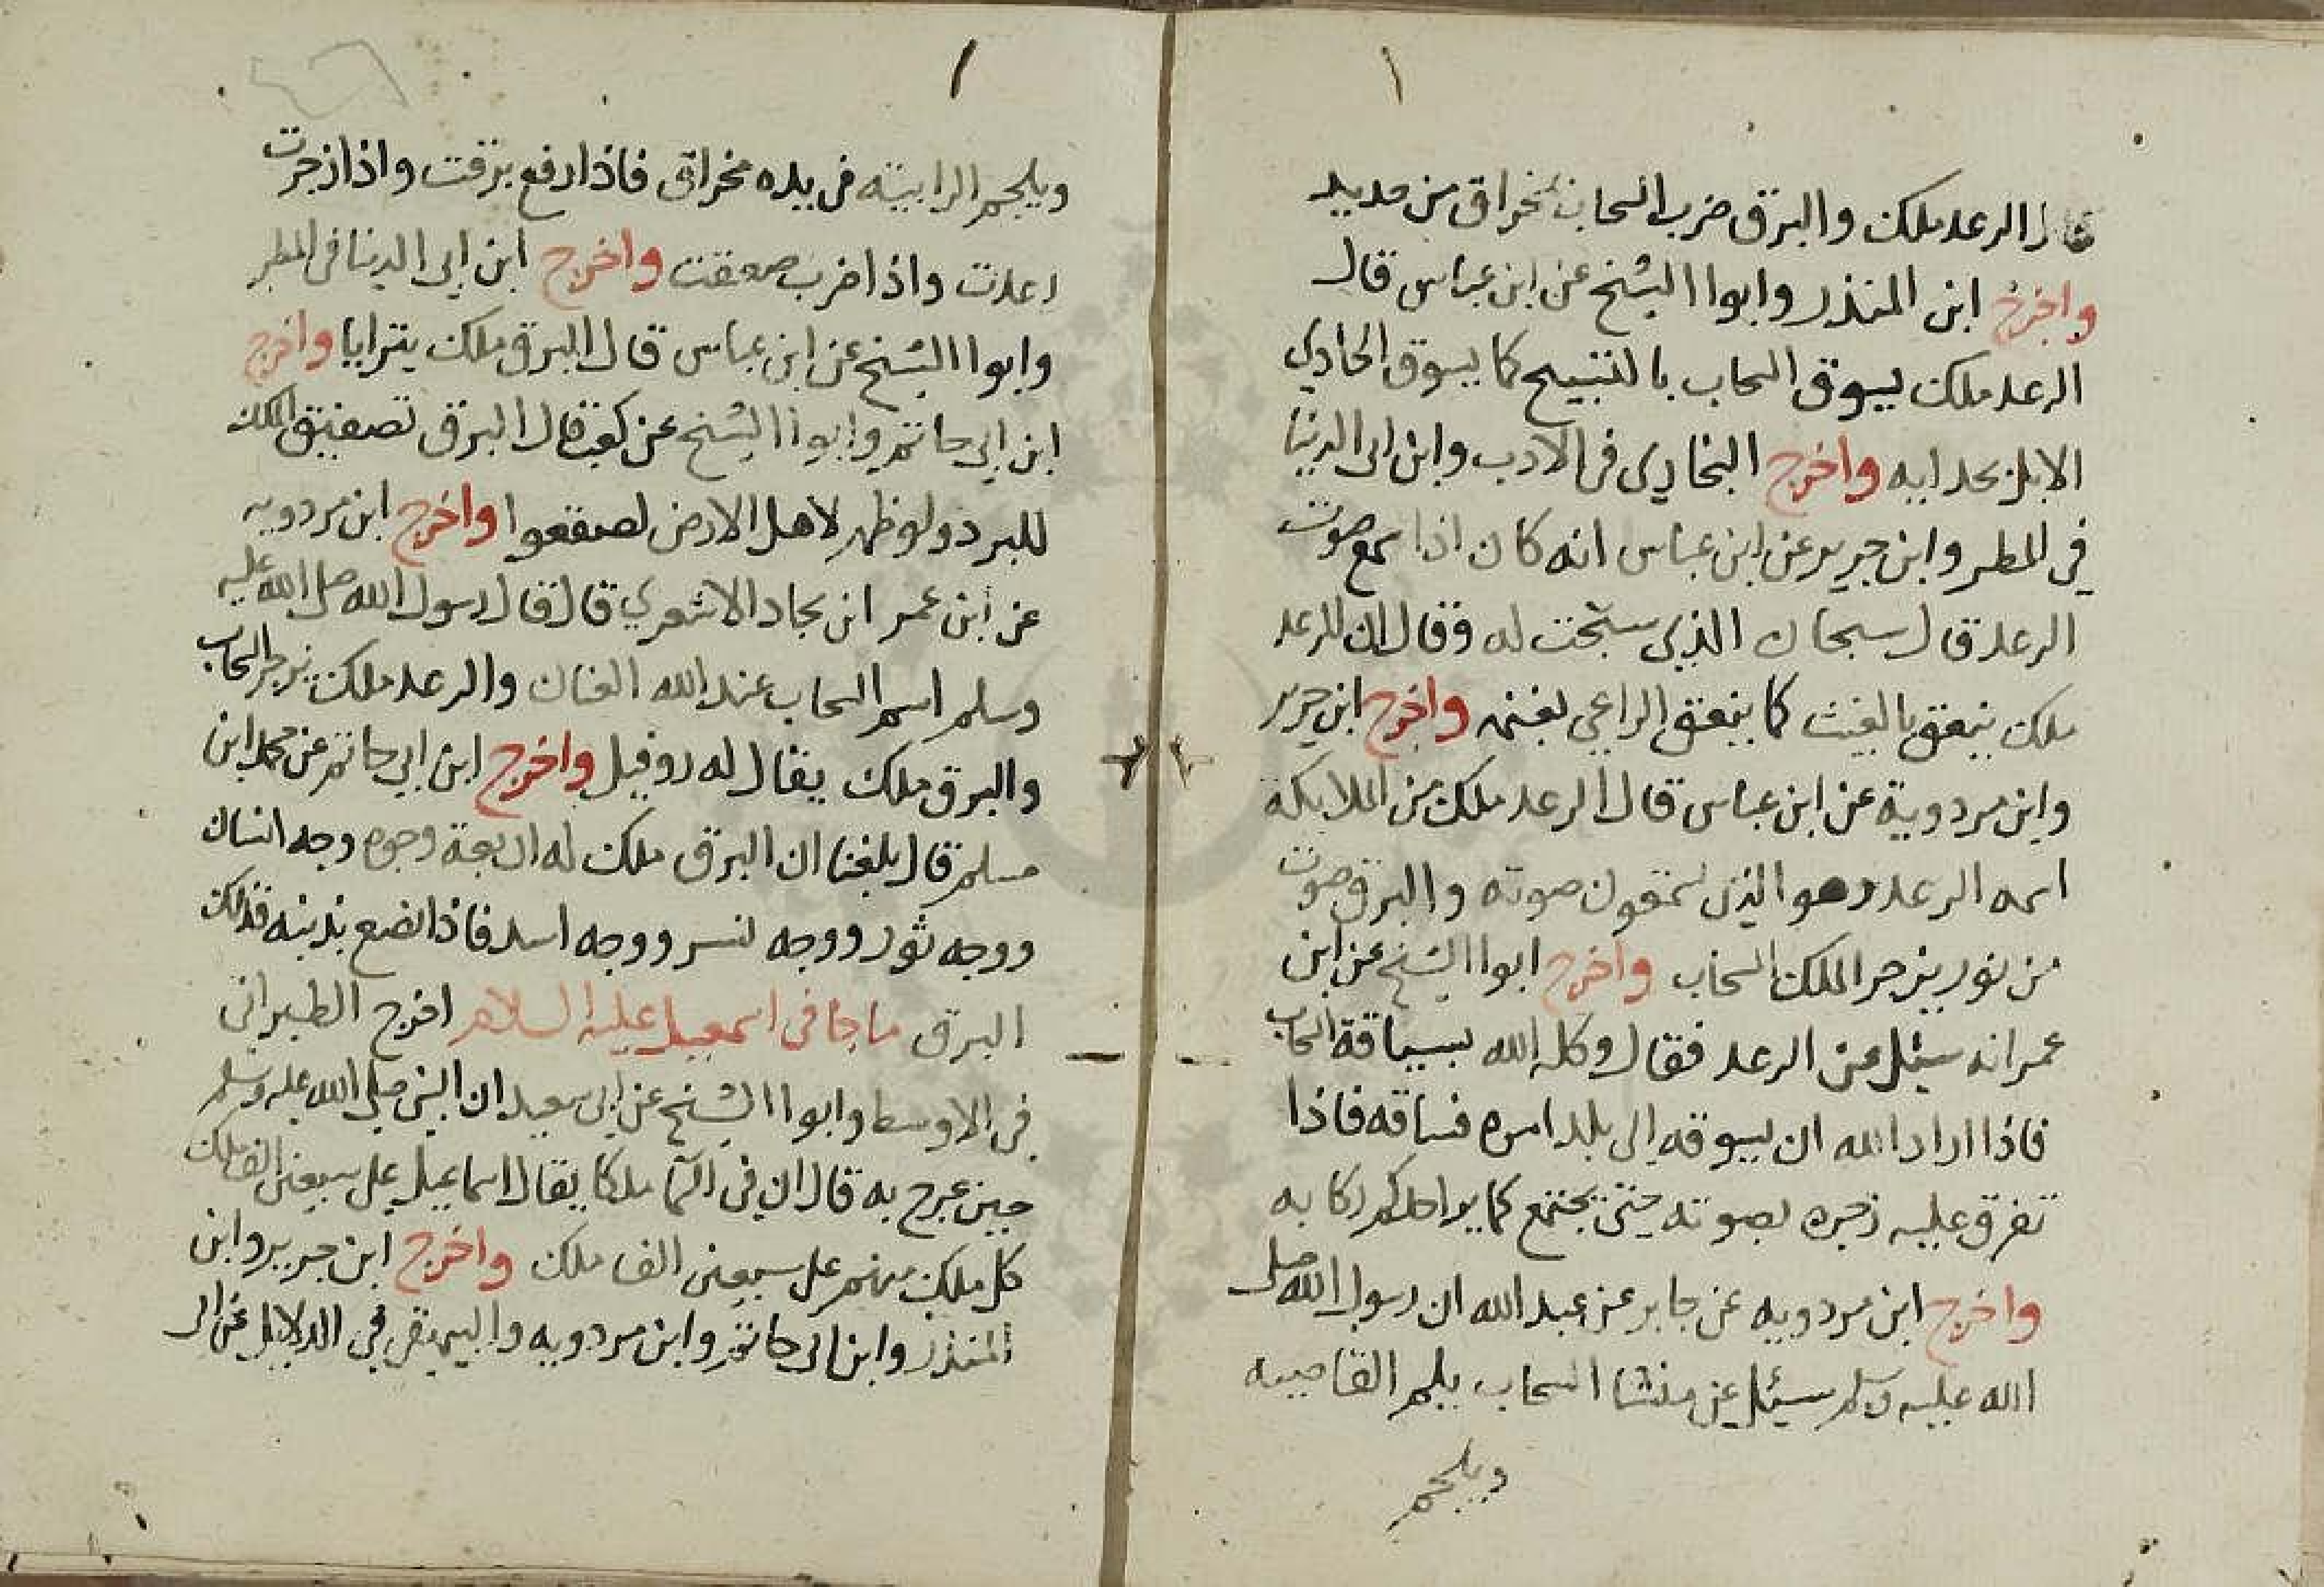 قال الرعد ملك والبرق ضرب السحاب بمخراق من حديد
واخرج ابن المنذر وابوا الشيخ عن ابن عباس قال
الرعد ملك يسوق السحاب بالتسبيح كما يسوق الحادي
الابل بحدايه واخرج البخاري فى الادب وابن ابى الدنيا
في المطر وابن جرير عن ابن عباس انه كان اذا سمع صوت
الرعد قال سبحان الذي سبحت له وقال ان الرعد
ملك ينعق بالغيث كما ينعق الراعي بغنمه واخرج ابن جرير
وابن مردوية عن ابن عباس قال الرعد ملك من الملايكة
اسمه الرعد وهو الذى تسمعون صوته والبرق صوت
من نور يزجر الملك السحاب واخرج ابوا الشيخ عن ابن
عمر انه سيئل عن الرعد فقال وكله الله بسياقة السحاب
فاذا اراد الله ان يسوقه الى بلد امره فساقه فاذا
تفرق عليه زجره بصوته حتى يجتمع كما يرد احدكم ركابه
واخرج ابن مردويه عن جابر عن عبد الله ان رسول الله صلى
الله عليه وسلم سيئل عن منشا السحاب يلم القاصيه
ويلجم
ويلجم الرابيته فى يده مخراق فاذا رفع برقت واذا زجرت
رعدت واذا ضرب صعقت واخرج ابن ابى الدنيا فى المطر
وابوا الشيخ عن ابن عباس قال البرق ملك يترايا واخرج
ابن ابي حاتم وابوا الشيخ عن كعب قال البرق تصفيق الملك
للبرد ولو ظهر لاهل الارض لصعقوا واخرج ابن مردويه
عن ابن عمر ابن بجاد الاشعري قال قال رسول الله صلى الله عليه
وسلم اسم السحاب عند الله العنان والرعد ملك يزجر السحاب
والبرق ملك يقال له روفيل واخرج ابن ابي حاتم عن محمد ابن
مسلم قال بلغنا ان البرق ملك له اربعة وجوه وجه انسان
ووجه ثور ووجه نسر ووجه اسد فاذا نصع بذنبه فذلك
البرق ما جا فى اسمعيل عليه السلام اخرج الطبرانى
فى الاوسط وابوا الشيخ عن ابى سعيد ان النبى صلى الله عليه وسلم
حين عرج به قال ان في السما ملكا يقال اسماعيل على سبعين الف ملك
كل ملك منهم على سبعين الف ملك واخرج ابن جرير وابن
المنذر وابن ابى حاتم وابن مردويه والبيهقى في الدلايل عن ابى